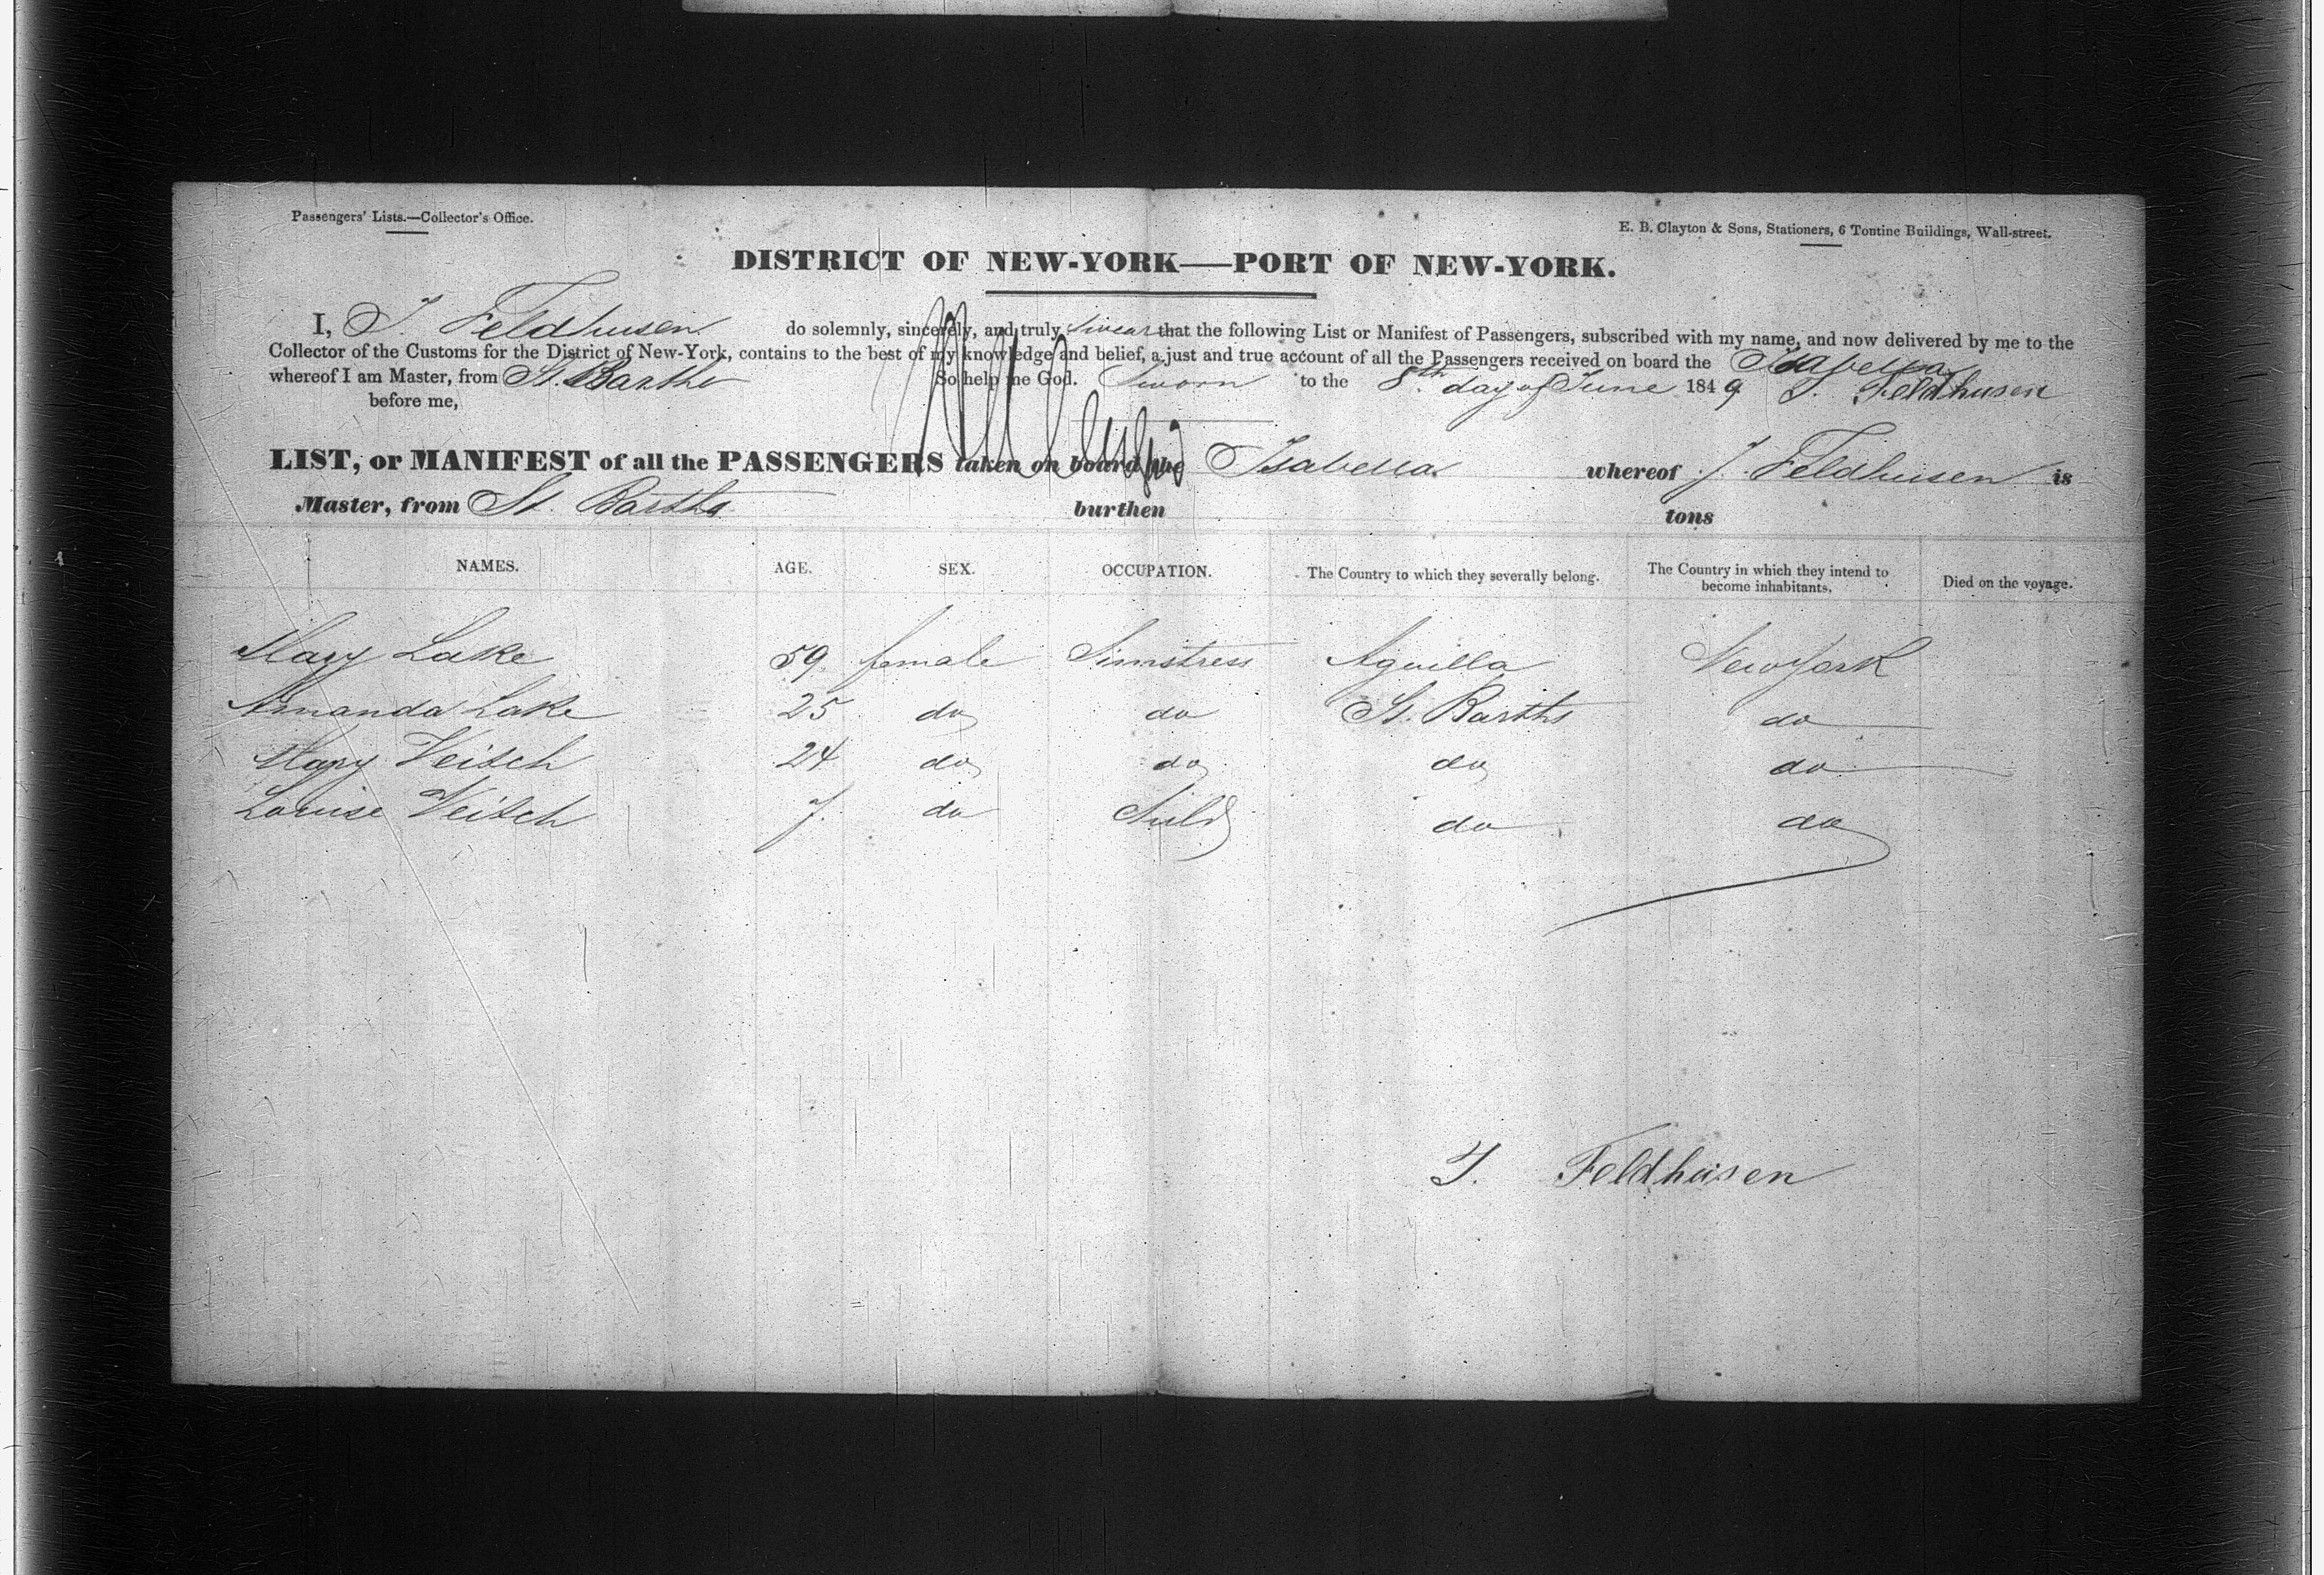 Passengers' Lists.—Collector's Office.
E. B. Clayton & Sons, Stationers, 6 Tontine Buildings, Wall-street.
DISTRICT OF NEW-YORK—PORT OF NEW-YORK.
I, J. Feldhusen do solemnly, sincerely, and truly swear that the following List or Manifest of Passengers, subscribed with my name, and now delivered by me to the
Collector of the Customs for the District of New-York, contains to the best of my knowledge and belief, a just and true account of all the Passengers received on board the Isabella
whereof I am Master, from St. Barths So help me God. Sworn to the 8th. day of June 1849 J. Feldhusen
before me,
LIST, or MANIFEST of all the PASSENGERS taken on board the Isabella whereof J. Feldhusen is
Master, from St. Barths burthen tons
NAMES. AGE. SEX. OCCUPATION. The Country to which they severally belong. The Country in which they intend to become inhabitants. Died on the voyage.
Mary Lake 59 female Simstress Aguilla New York
Amanda Lake 25 do do St. Barths do
Mary Veitch 24 do do do do
Louise Veitch 7. do Child do do
J. Feldhusen